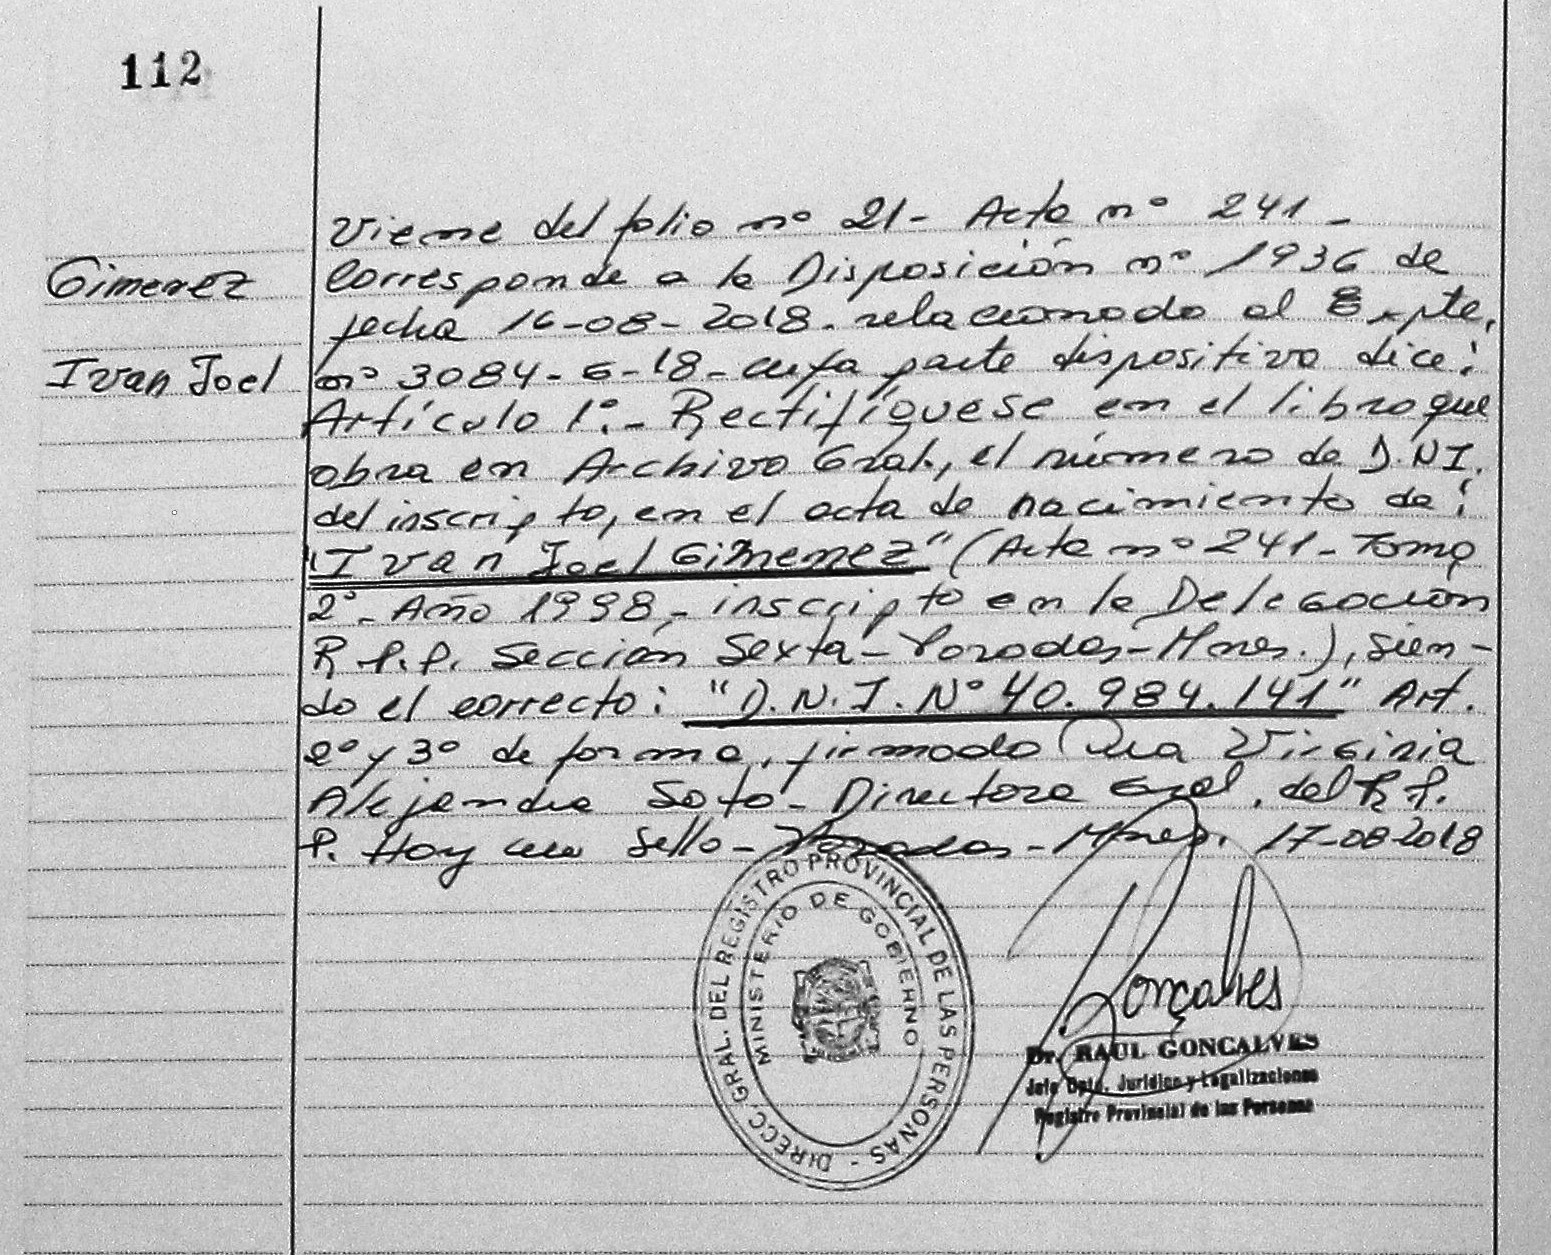 112
Viene del folio nº 21- Acta nº 241-
Gimenez
Corresponde a la Disposición nº 1936 de
fecha 16-08-2018. relacionado al Expte.
Ivan Joel
nº 3084-G-18- cuya parte dispositiva dice:
Artículo 1º.- Rectifíquese en el libro que
obra en Archivo Gral., el número de D.NI.
del inscripto, en el acta de nacimiento de:
"Ivan Joel Gimenez" (Acta nº 241- Tomo
2º- Año 1998,- inscripto en la Delegación
R.P.P. Sección Sexta- Posadas- Mnes.), sien-
do el correcto: "D.N.I. Nº 40.984.141" Art.
2º y 3º de forma, firmado Dra Virginia
Alejandra Soto- Directora Gral. del R.P.
P. Hay un Sello- Posadas- Mnes. 17-08-2018
DIRECC. GRAL. DEL REGISTRO PROVINCIAL DE LAS PERSONAS -
MINISTERIO DE GOBIERNO
Gonçalves
Dr. RAUL GONCALVES
Jefe Dpto. Jurídico y Legalizaciones
Registro Provincial de las Personas